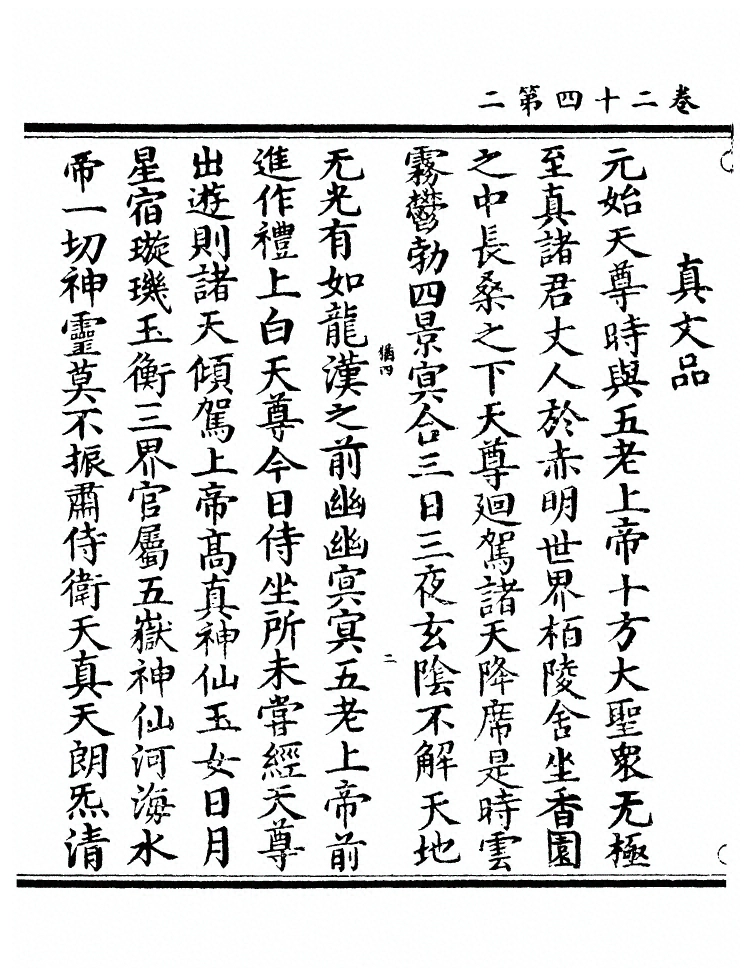 卷二十四第二
真文品
元始天尊時與五老上帝十方大聖衆无極
至真諸君丈人於赤明世界栢陵舍坐香園
之中長桑之下天尊廻駕諸天降席是時雲
霧鬱勃四景冥合三日三夜玄陰不解天地
猶四
二
无光有如龍漢之前幽幽冥冥五老上帝前
進作禮上白天尊今日侍坐所未甞經天尊
出遊則諸天傾駕上帝髙真神仙玉女日月
星宿璇璣玉衡三界官屬五嶽神仙河海水
帝一切神靈莫不振肅侍衛天真天朗炁清